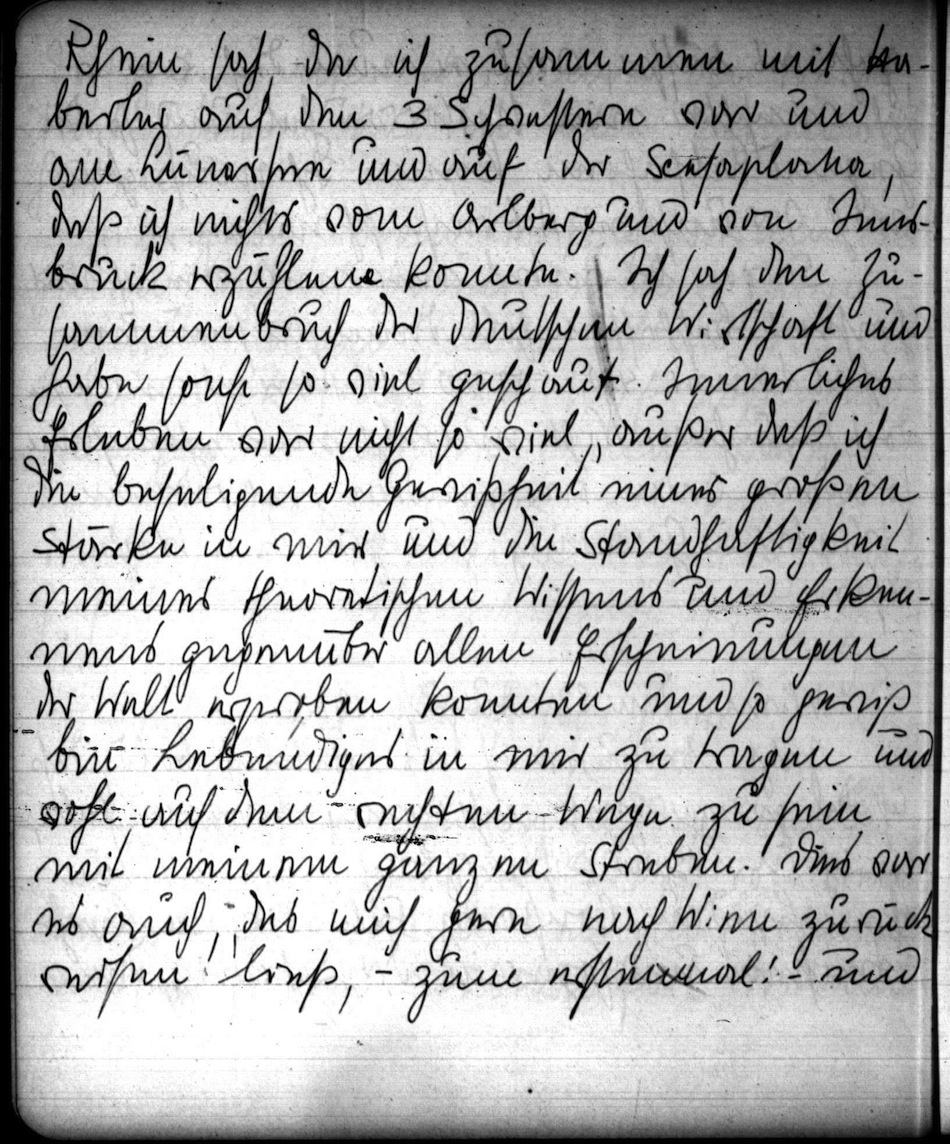 Rhein sah, der ich zusammen mit Ha-
berler auf den 3 Schwestern war und
am Lünersee und auf der Scesaplana,
daß ich nichts vom Arlberg und von Inns-
bruck erzählen konnte. Ich sah den Zu-
sammenbruch der deutschen Wirtschaft und
habe sonst so viel geschaut. Innerliches
Erleben war nicht so viel, außer daß ich
die beseligende Gewißheit einer großen
Stärke in mir und die Standhaftigkeit
meines theoretischen Wissens und Erken-
nens gegenüber allen Erscheinungen
der Welt erproben konnten und so gewiß
bin Lebendiges in mir zu tragen und
wohl auf dem rechten Wege zu sein
mit meinem ganzen Streben. Dies war
es auch, das mich gern nach Wien zurück
reisen ließ, – zum erstenmal! – und